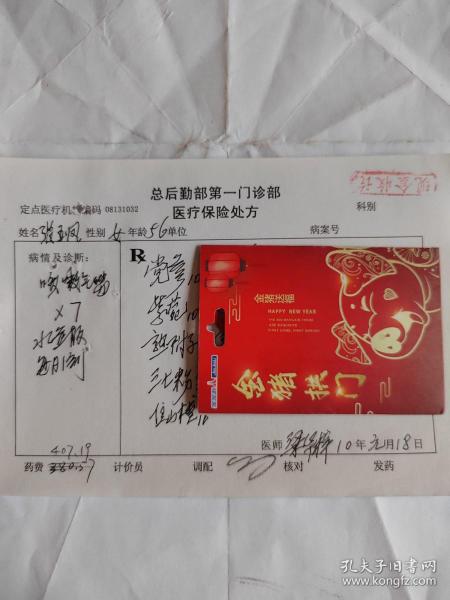 总后勤部第一门诊部
医疗保险处方
现金收讫
定点医疗机构编码 08131032
科别
姓名 张玉凤 性别 女 年龄 56 单位
病案号
病情及诊断:
R
咳嗽气喘
×7
水煎服
每日1剂
党参10
紫苑10
三七粉
生山楂10
金猪送福
HAPPY NEW YEAR
金猪拱门
407.19
医师
10年元月18日
药费
计价员
调配
核对
发药
孔夫子旧书网
www.kongfz.com